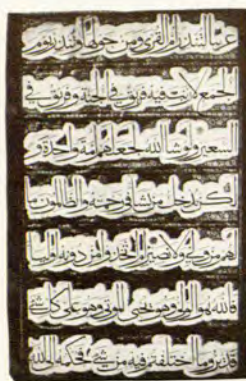 عربيا لتنذر ام القرى ومن حولها وتنذر يوم
الجمع لا ريب فيه فريق في الجنة وفريق في
السعير ولو شا الله لجعلهم امة واحدة و
لكن يدخل من يشا في رحمته والظالمون ما
لهم من ولي ولا نصير ام اتخذوا من دونه اوليا
فالله هو الولي وهو يحيي الموتى وهو على كل شي
قدير وما اختلفتم فيه من شي فحكمه الى الله